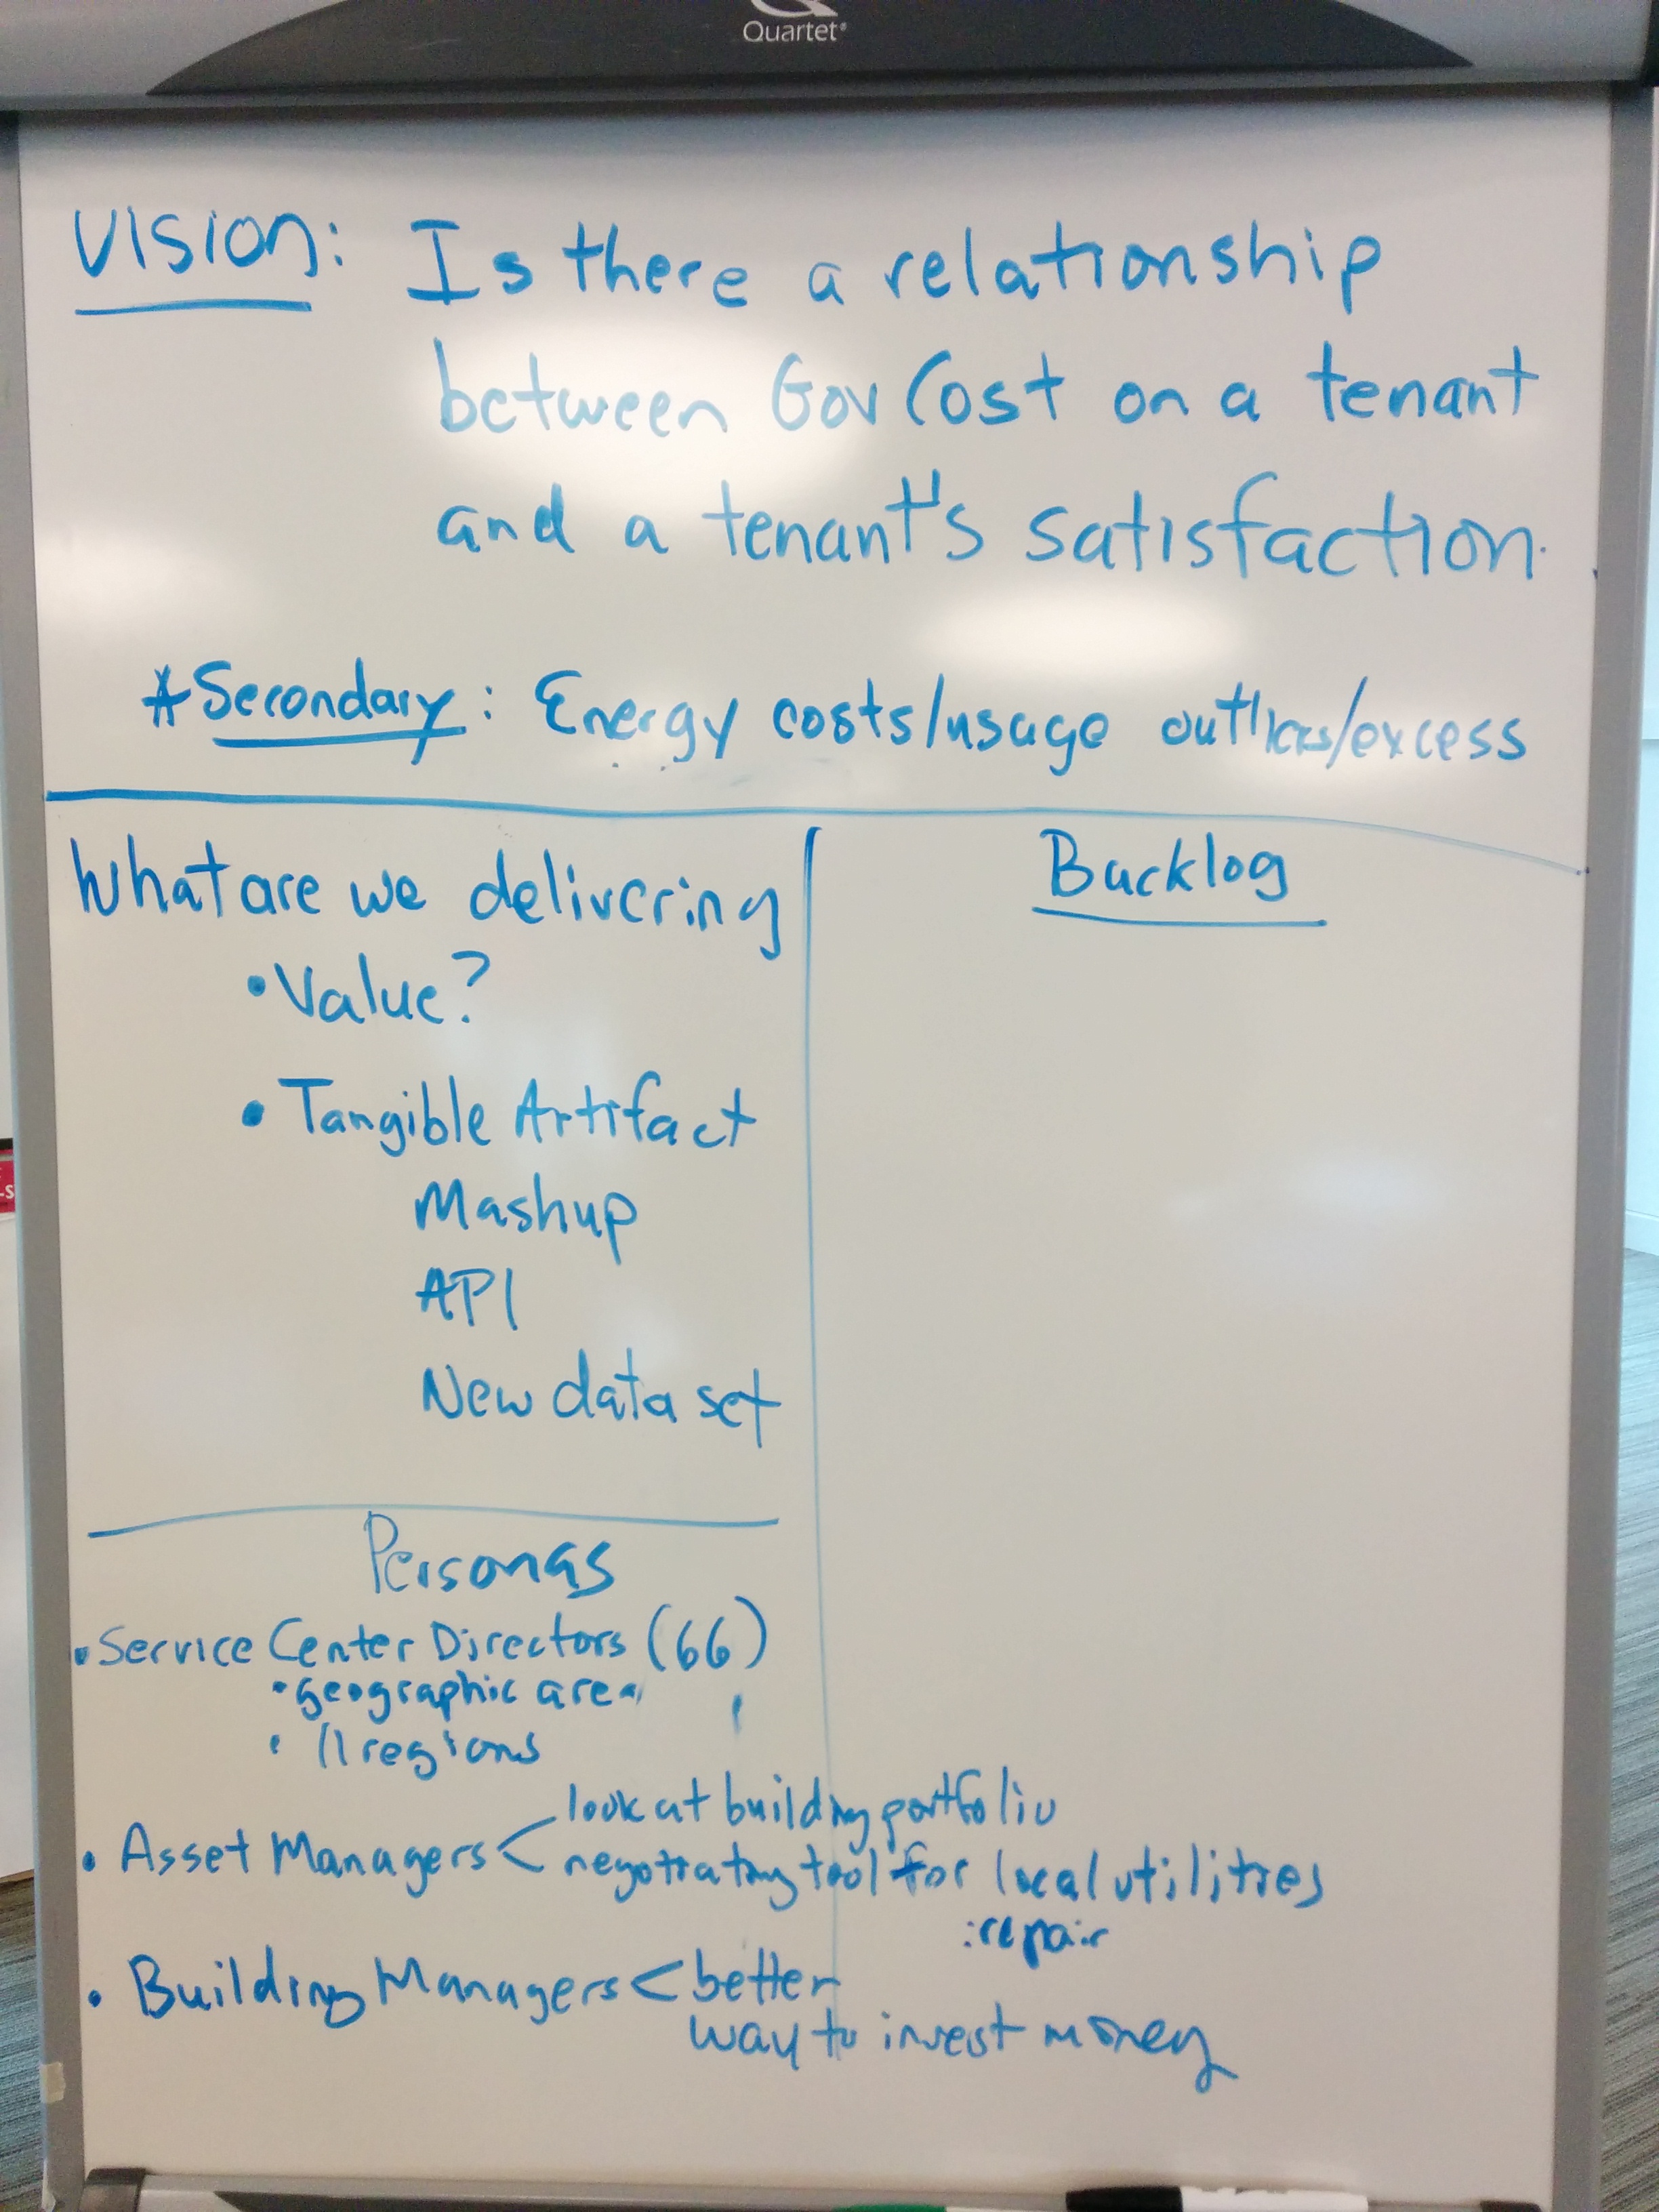 Quartet®
Vision: Is there a relationship
between Gov Cost on a tenant
and a tenant's satisfaction.
*Secondary: Energy costs/usage outliers/excess
What are we delivering
• Value?
• Tangible Artifact
Mashup
API
New data set
Backlog
Personas
• Service Center Directors (66)
• geographic area
• 11 regions
• Asset Managers < look at building portfolio
negotiating tool for local utilities
: repair
• Building Managers < better
way to invest money